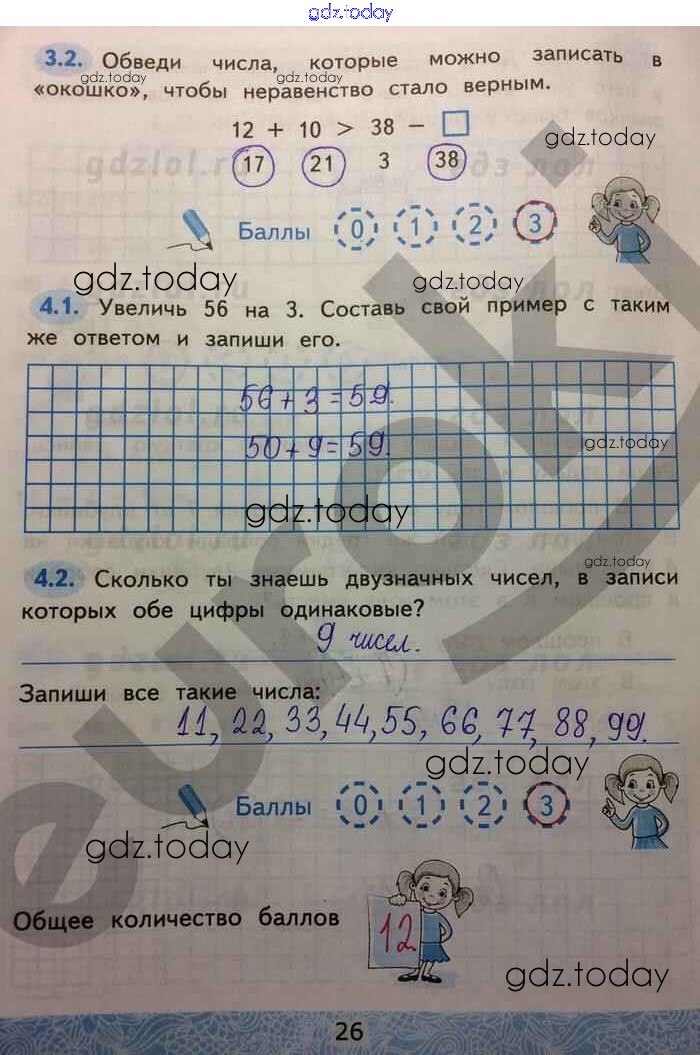 gdz.today
3.2. Обведи числа, которые можно записать в
gdz.today
«окошко», чтобы неравенство стало верным.
12 + 10 > 38 −
gdz.today
gdzlol.ru
17 21 3 38
Баллы 0 1 2 3
gdz.today
gdz.today
4.1. Увеличь 56 на 3. Составь свой пример с таким
же ответом и запиши его.
56+3=59.
50+9=59.
gdz.today
gdz.today
gdz.today
4.2. Сколько ты знаешь двузначных чисел, в записи
которых обе цифры одинаковые?
9 чисел.
Запиши все такие числа:
11, 22, 33, 44, 55, 66, 77, 88, 99.
gdz.today
Баллы 0 1 2 3
gdz.today
Общее количество баллов 12
gdz.today
26
euroki